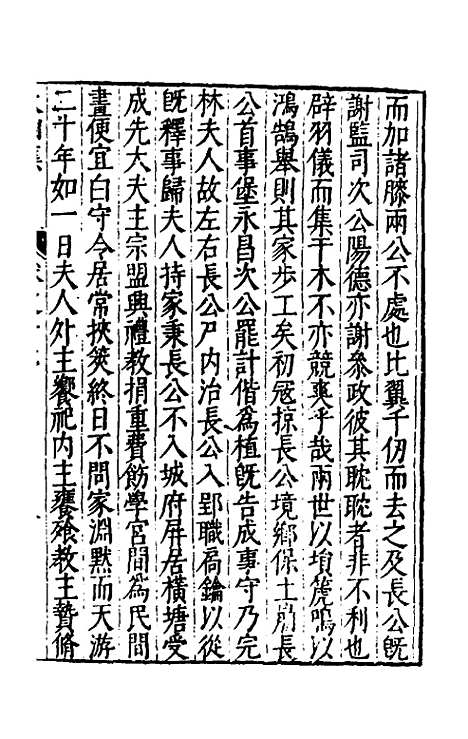 而加諸膝兩公不處也比翼千仞而去之及長公既
謝監司次公陽德亦謝參政彼其耽耽者非不利也
辟羽儀而集干木不亦競爽乎哉兩世以埙篪鳴以
鴻鵠舉則其家步工矣初冦掠長公境鄉保土扃長
公首事堡永昌次公罷計偕為植既告成事守乃完
林夫人故左右長公尸內治長公入郢職扃鑰以從
既釋事歸夫人持家秉長公不入城府屏居橫塘受
成先大夫主宗盟興禮教捐重費飭學宮間為民間
畫便宜白守令居常挾筴終日不問家淵默而天游
二十年如一日夫人外主饗祀內主饔飱教主贄脩